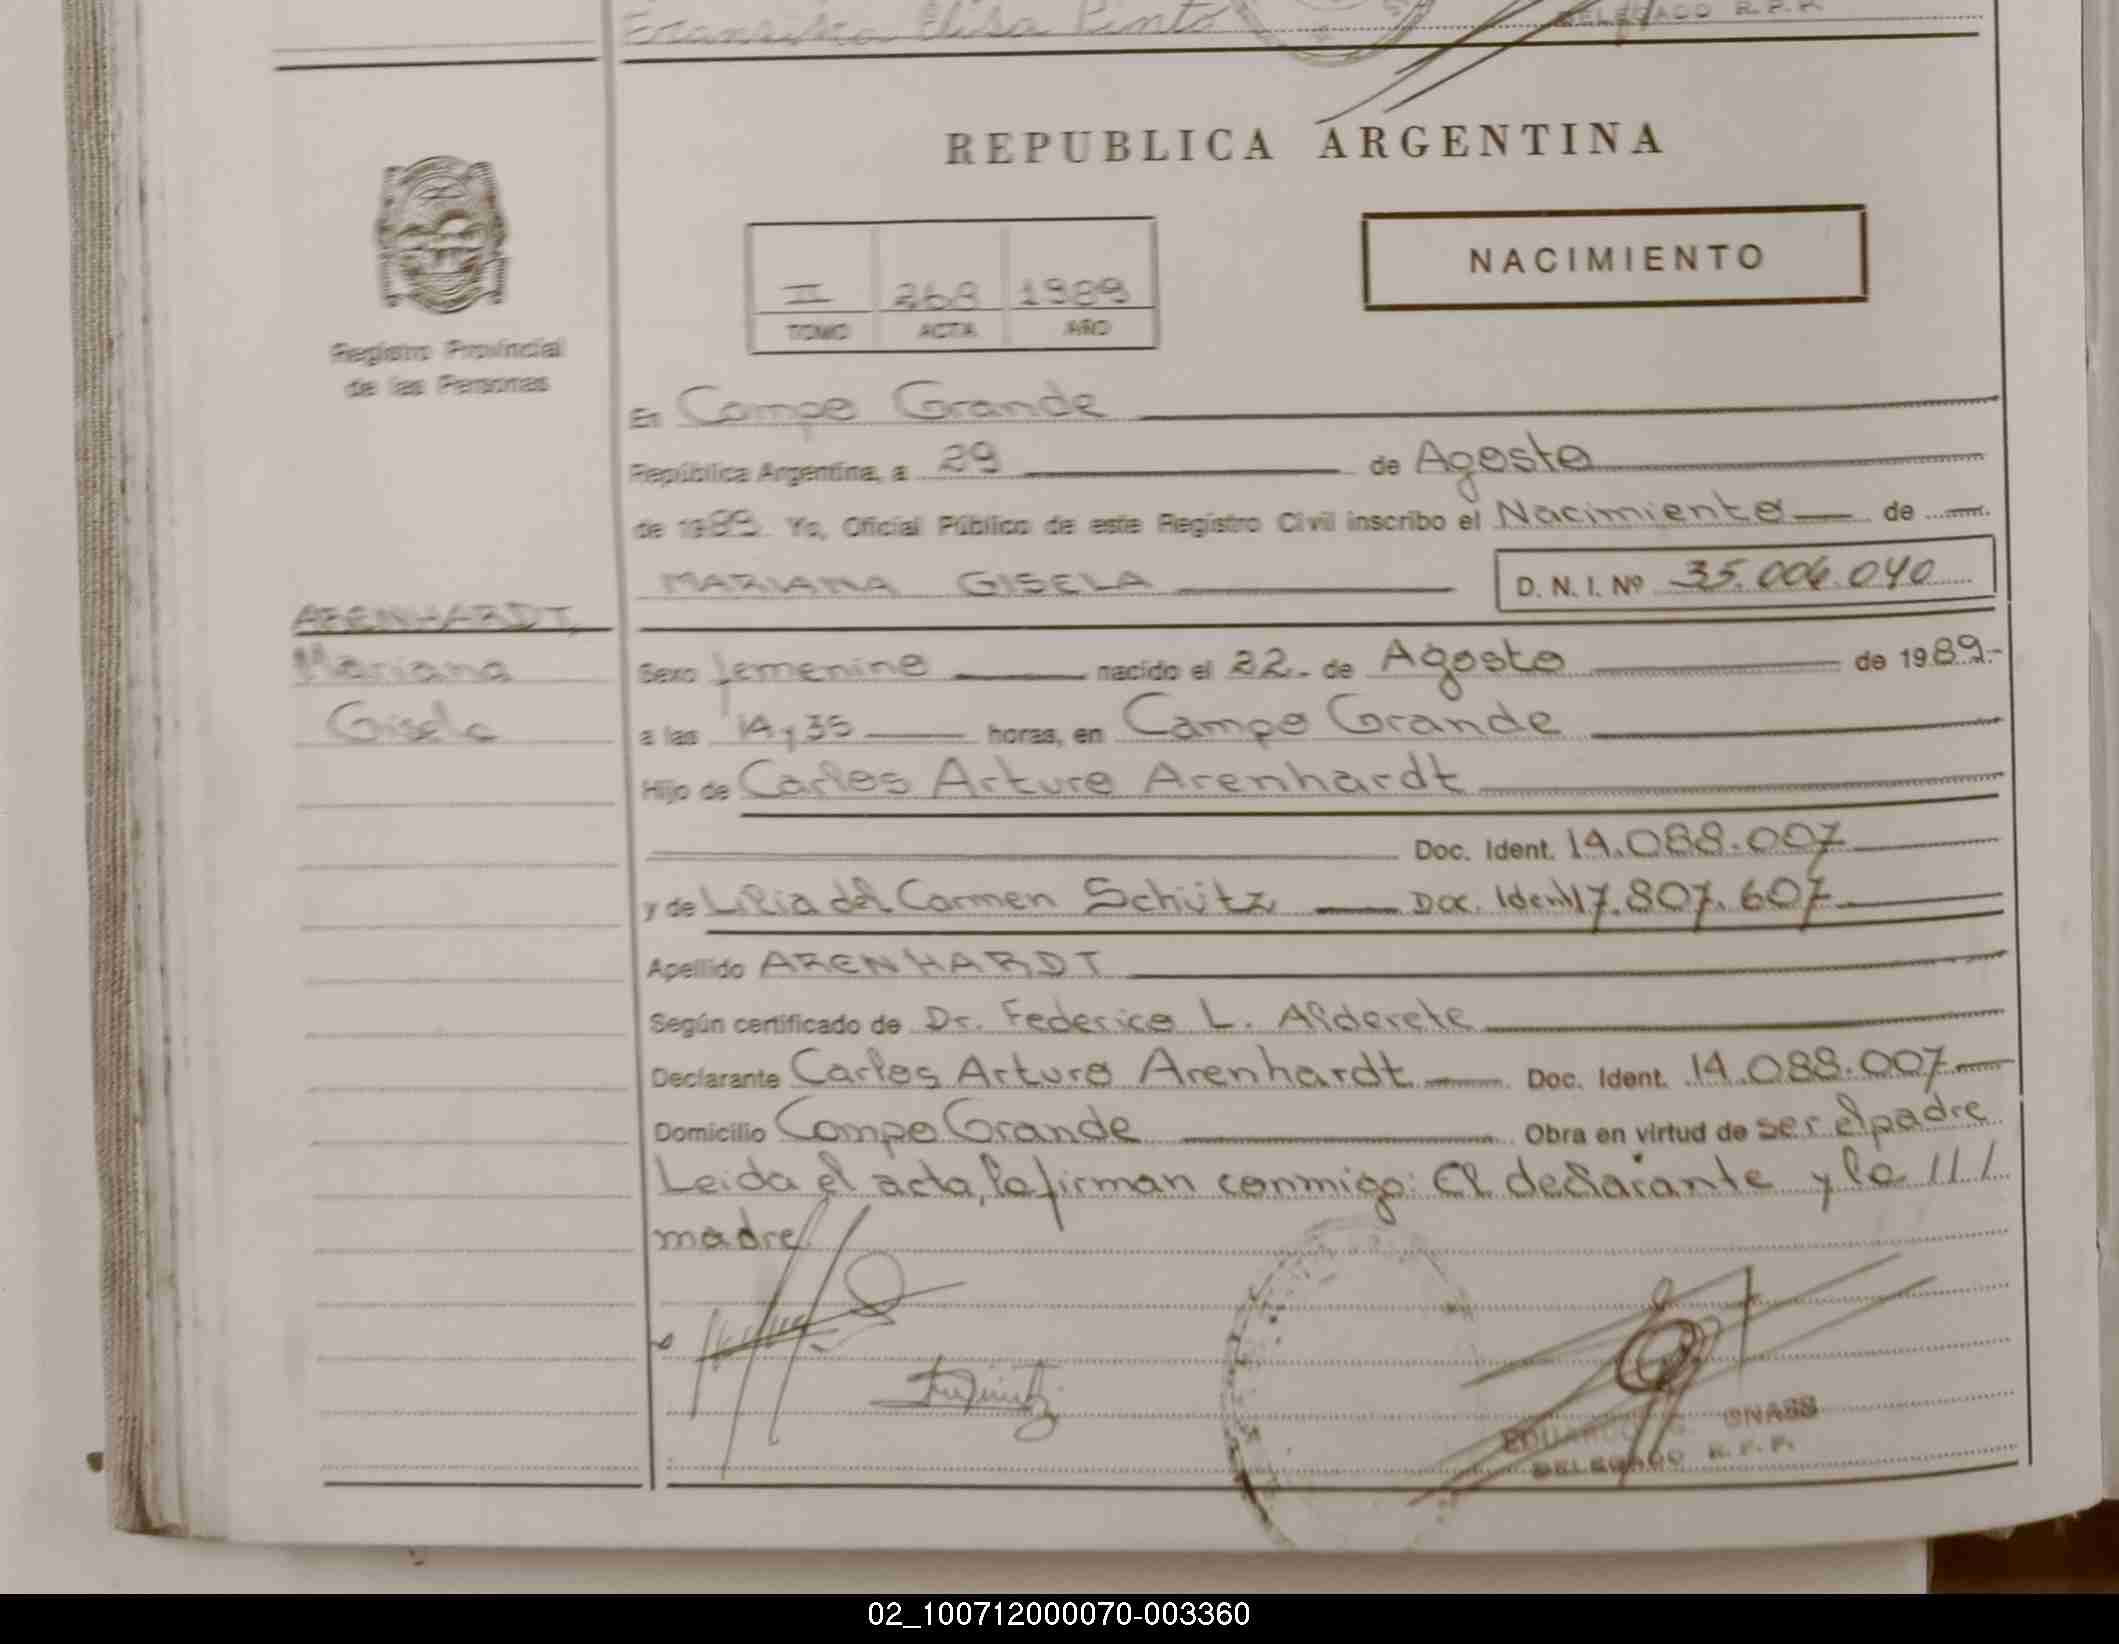 Francisca Elisa Pinto
DELEGADO R.P.P.
REPUBLICA ARGENTINA
NACIMIENTO
II 268 1989
TOMO ACTA AÑO
Registro Provincial
de las Personas
En Campo Grande
República Argentina, a 29 de Agosto
de 1989. Yo, Oficial Público de este Registro Civil inscribo el Nacimiento de
MARIANA GISELA
D. N. I. Nº 35.006.040
ARENHARDT,
Mariana
Gisela
Sexo femenino nacido el 22. de Agosto de 1989.-
a las 14 y 35 horas, en Campo Grande
Hijo de Carlos Arturo Arenhardt
Doc. Ident. 14.088.007
y de Lilia del Carmen Schütz Doc. Ident 17.807.607
Apellido ARENHARDT
Según certificado de Dr. Federico L. Alderete
Declarante Carlos Arturo Arenhardt Doc. Ident. 14.088.007
Domicilio Campo Grande Obra en virtud de ser el padre
Leida el acta, la firman conmigo: El declarante y la ///
madre
DELEGADO R.P.P.
02_100712000070-003360